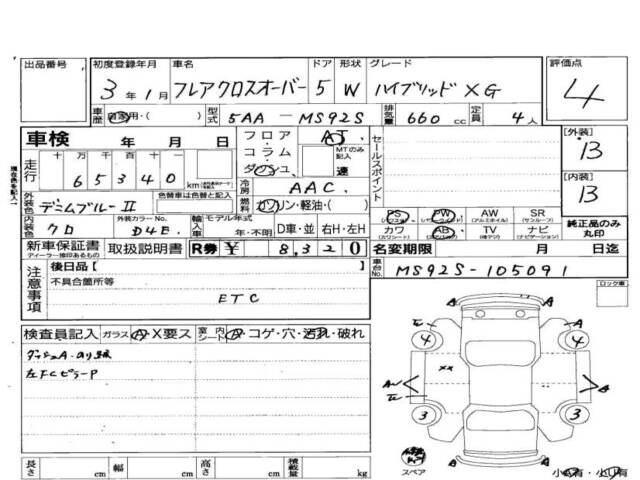 出品番号 初度登録年月 車名 ドア 形状 グレード 評価点
3年1月 フレアクロスオーバー 5 W ハイブリッド XG 4
車歴 自家用・( ) 型式 5AA-MS92S 排気量 660 cc 定員 4人
車検 年 月 日 フロア AT 【外装】
走行 十 万 千 百 十 コラム MTのみ記入 セールスポイント 13
65340 km ダッシュ 速
現在色を記入 色替車は色替と記入 冷房 AAC 【内装】
外装色 デニムブルーII 燃料 ガソリン・軽油・( ) 13
内装色 クロ 外装カラーNo. D4E 輸入車 モデル年式 年・不明 D車・並 右H・左H
PS PW AW SR
カワ AB TV ナビ 純正品のみ丸印
新車保証書 取扱説明書 R券 ¥ 8,320 名変期限 月 日迄
ディーラー捺印があるもの
注意事項 後日品【 】 車台No. MS92S-105091
不具合箇所等 ロック車
ETC
検査員記入 ガラス A・X要ス 室内シート A・コゲ・穴・汚れ・破れ
ダッシュA・のり跡
左FCピラーP
4 4
A A
3 3
スペア 小傷有・小凹有
長さ cm 幅 cm 高さ cm 積載量 kg